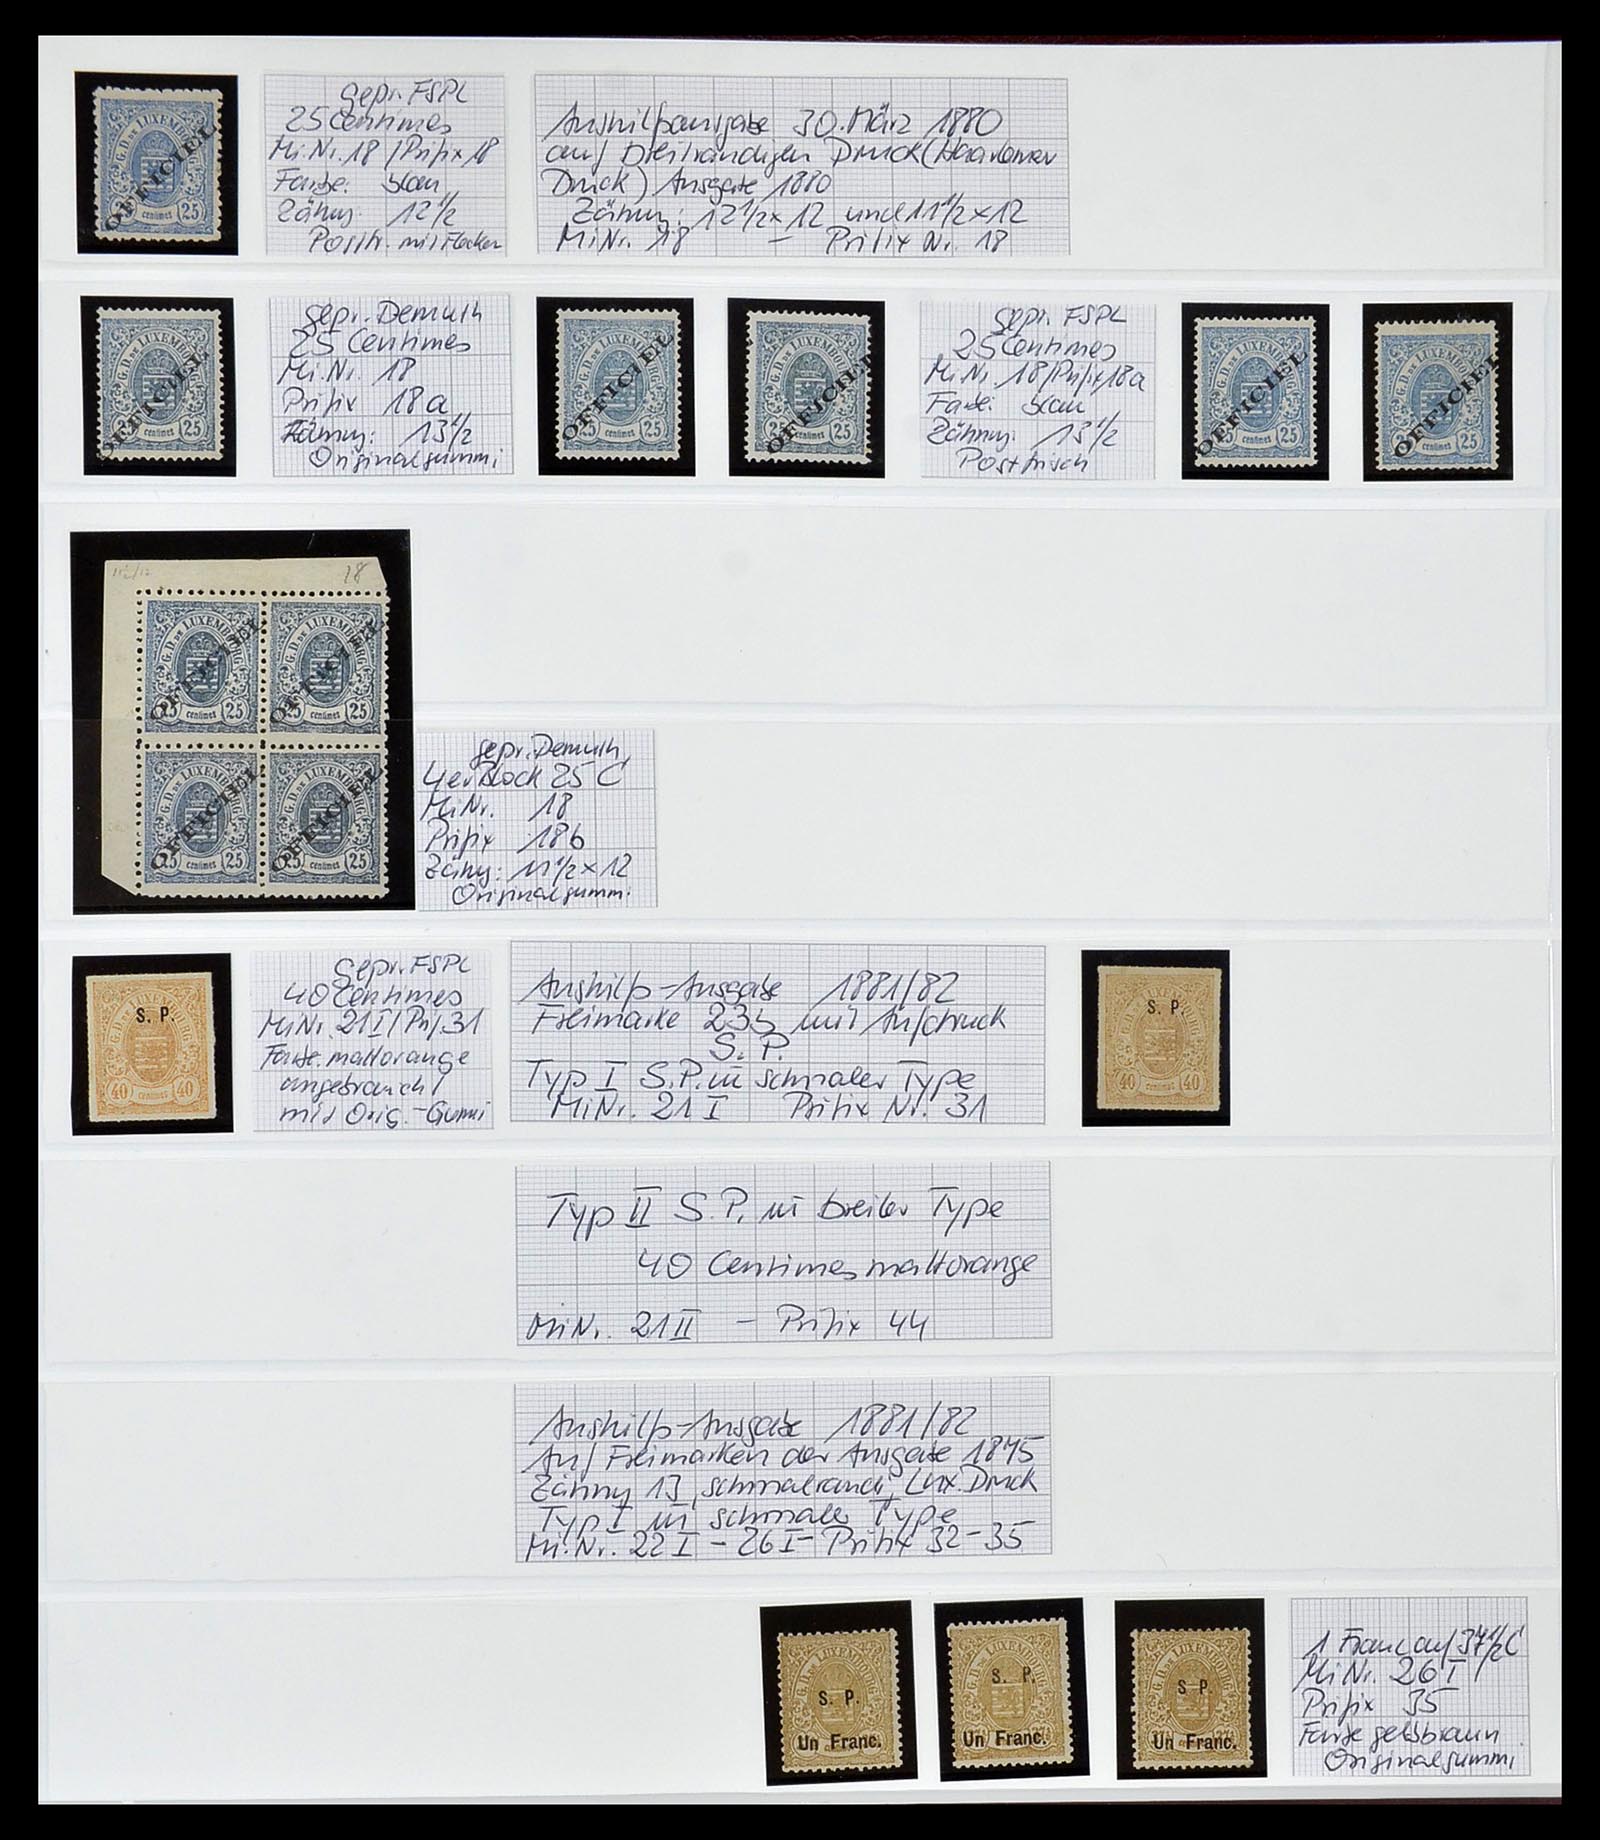 G.D. DE LUXEMBOURG
OFFICIEL
25 centimes 25
gepr. FSPL
25 Centimes
Mi.Nr. 18 / Prifix 18
Farbe: blau
Zähng. 12 1/2
Postfr. mit Flecken
Aushilfsausgabe 30. März 1880
auf breitrandigen Druck (Haarlemer
Druck) Ausgabe 1880
Zähng: 12 1/2 x 12 und 11 1/2 x 12
Mi Nr. 18 - Prifix Nr. 18
G.D. DE LUXEMBOURG
OFFICIEL
25 centimes 25
gepr. Demuth
25 Centimes
Mi.Nr. 18
Prifix 18a
Zähnug: 13 1/2
Originalgummi
G.D. DE LUXEMBOURG
OFFICIEL
25 centimes 25
G.D. DE LUXEMBOURG
OFFICIEL
25 centimes 25
gepr. FSPL
25 Centimes
Mi Nr. 18 / Prifix 18a
Farbe: blau
Zähnug. 13 1/2
Postfrisch
G.D. DE LUXEMBOURG
OFFICIEL
25 centimes 25
G.D. DE LUXEMBOURG
OFFICIEL
25 centimes 25
18
G.D. DE LUXEMBOURG
OFFICIEL
25 centimes 25
G.D. DE LUXEMBOURG
OFFICIEL
25 centimes 25
G.D. DE LUXEMBOURG
OFFICIEL
25 centimes 25
G.D. DE LUXEMBOURG
OFFICIEL
25 centimes 25
gepr. Demuth
4er Block 25 C
Mi Nr. 18
Prifix 18b
Zähng: 11 1/2 x 12
Originalgummi
G.D. DE LUXEMBOURG
S. P.
40 centimes 40
gepr. FSPL
40 Centimes
Mi Nr. 21 I / Prif. 31
Farbe. mattorange
ungebraucht
mit Orig. - Gummi
Aushilfs-Ausgabe 1881/82
Freimarke 23b mit Aufdruck
S. P.
Typ I S.P. in schmaler Type
Mi Nr. 21 I Prifix Nr. 31
G.D. DE LUXEMBOURG
S. P.
40 centimes 40
Typ II S.P. in breiter Type
40 Centimes mattorange
Mi Nr. 21 II - Prifix 44
Aushilfs-Ausgabe 1881/82
Auf Freimarken der Ausgabe 1875
Zähnug 13, schmalrandi, Lux. Druck
Typ I in schmaler Type
Mi. Nr. 22 I - 26 I - Prifix 32-35
G.D. DE LUXEMBOURG
S. P.
Un Franc.
G.D. DE LUXEMBOURG
S. P.
Un Franc.
G.D. DE LUXEMBOURG
S. P.
Un Franc.
1 Franc auf 37 1/2 C
Mi Nr. 26 I
Prifix 35
Farbe gelbbraun
Originalgummi